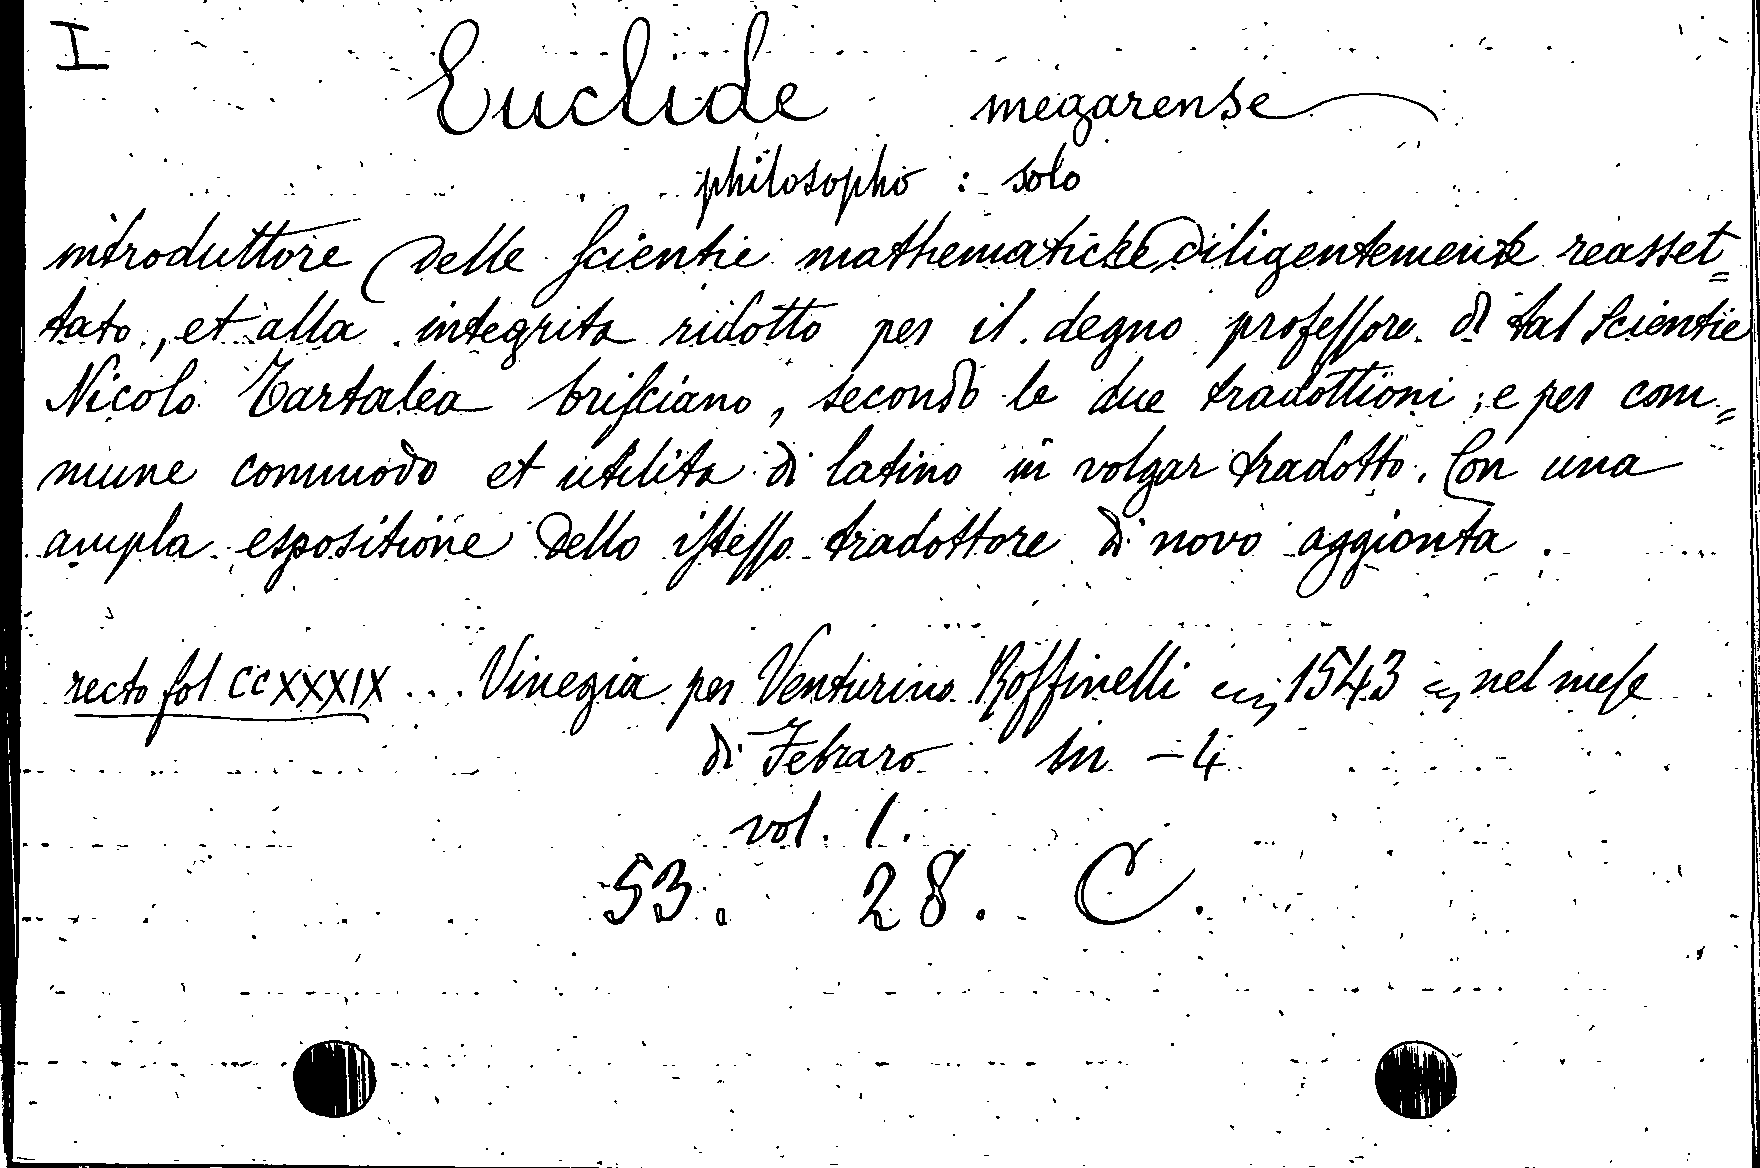 I
Euclide megarense
philosopho : solo
introduttore (delle scientie mathematiche) diligentemente reasset=
tato, et alla integrita ridotto per il degno professore di tal Scientie
Nicolo Tartalea brisciano, secondo le due tradottioni; e per com=
mune commodo et utilita di latino in volgar tradotto. Con una
ampla espositione dello istesso tradottore di novo aggionta.
recto fol CCXXXIX ... Vinegia per Venturino Roffinelli 1543 nel mese
di Febraro in -4
vol. 1.
53. 28. C.